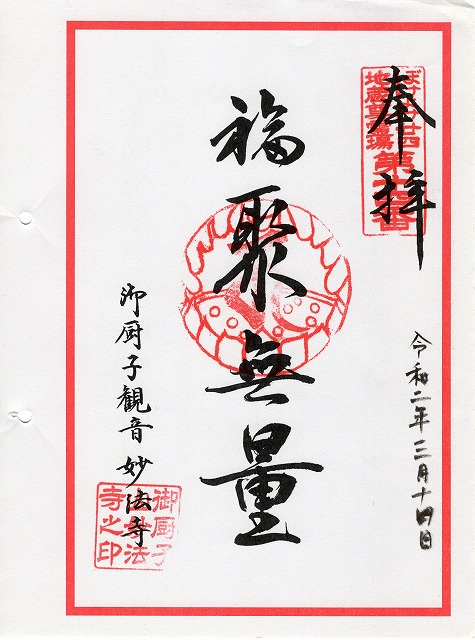 奉拝
ぼけ
地蔵
霊場
番
令和二年三月十四日
福聚無量
御厨子観音 妙法寺
御厨子
妙法
寺之印